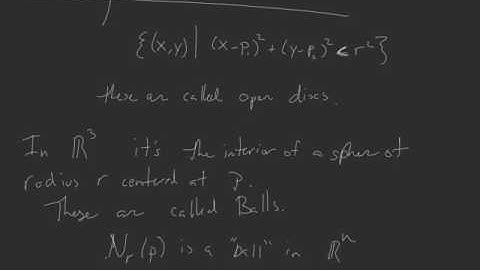 {(x,y) | (x-p₁)² + (y-p₂)² < r²}
these are called open discs.
In ℝ³ it's the interior of a sphere of
radius r centered at p.
These are called Balls.
Nᵣ(p) is a "ball" in ℝⁿ